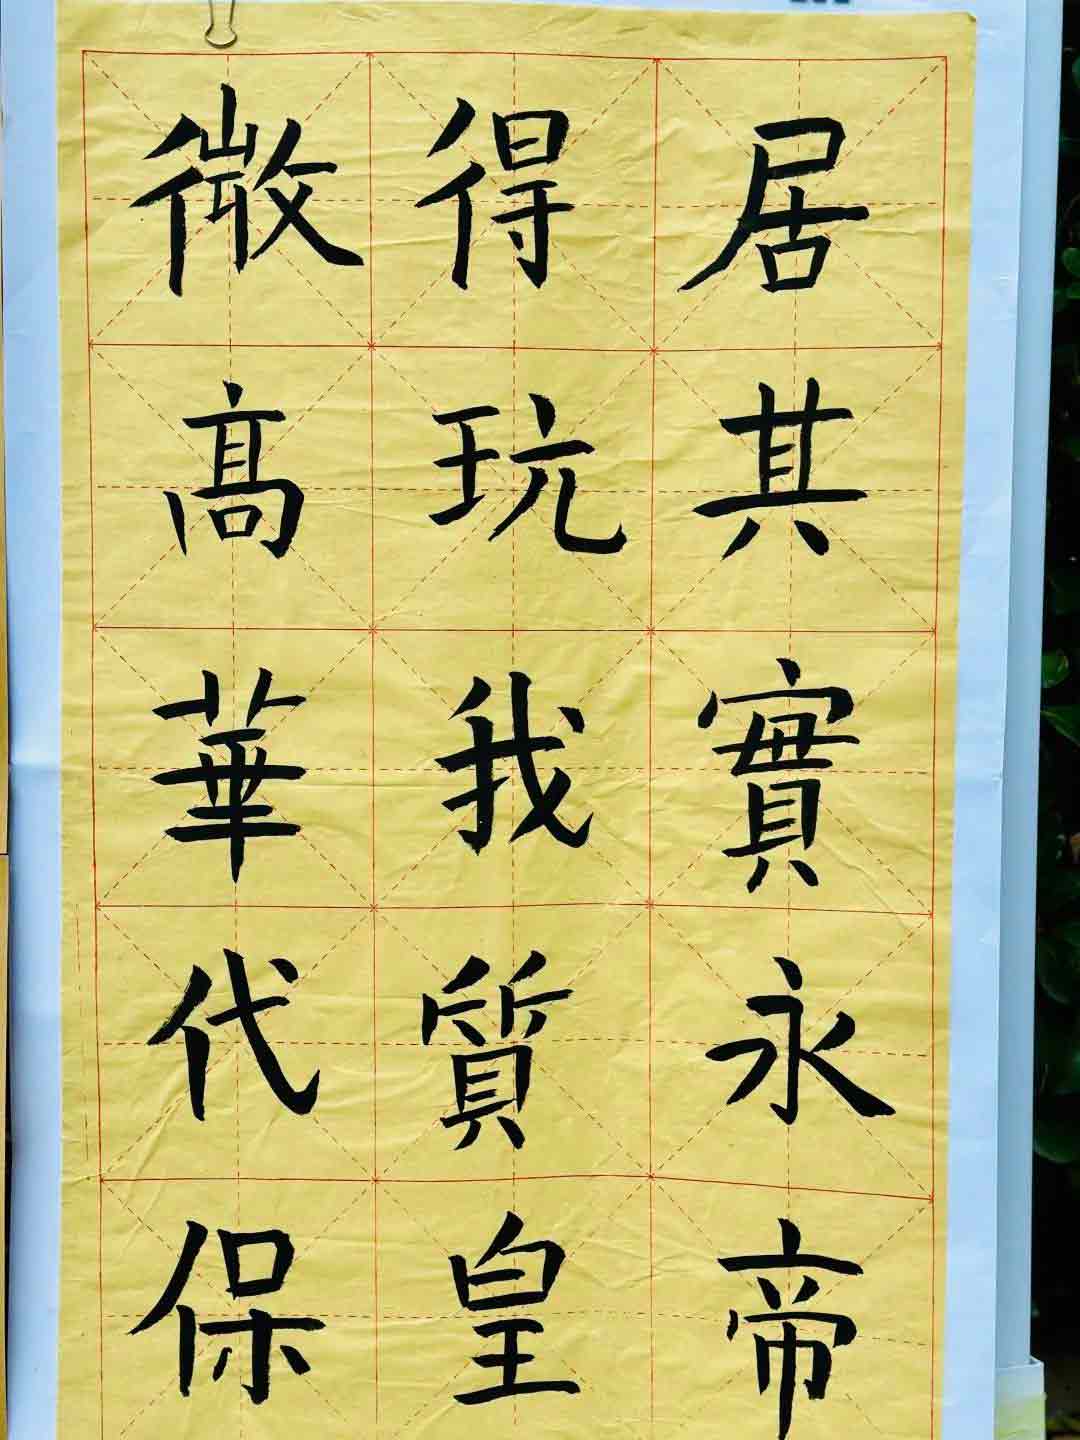 微得居
髙玩其
華我實
代質永
保皇帝